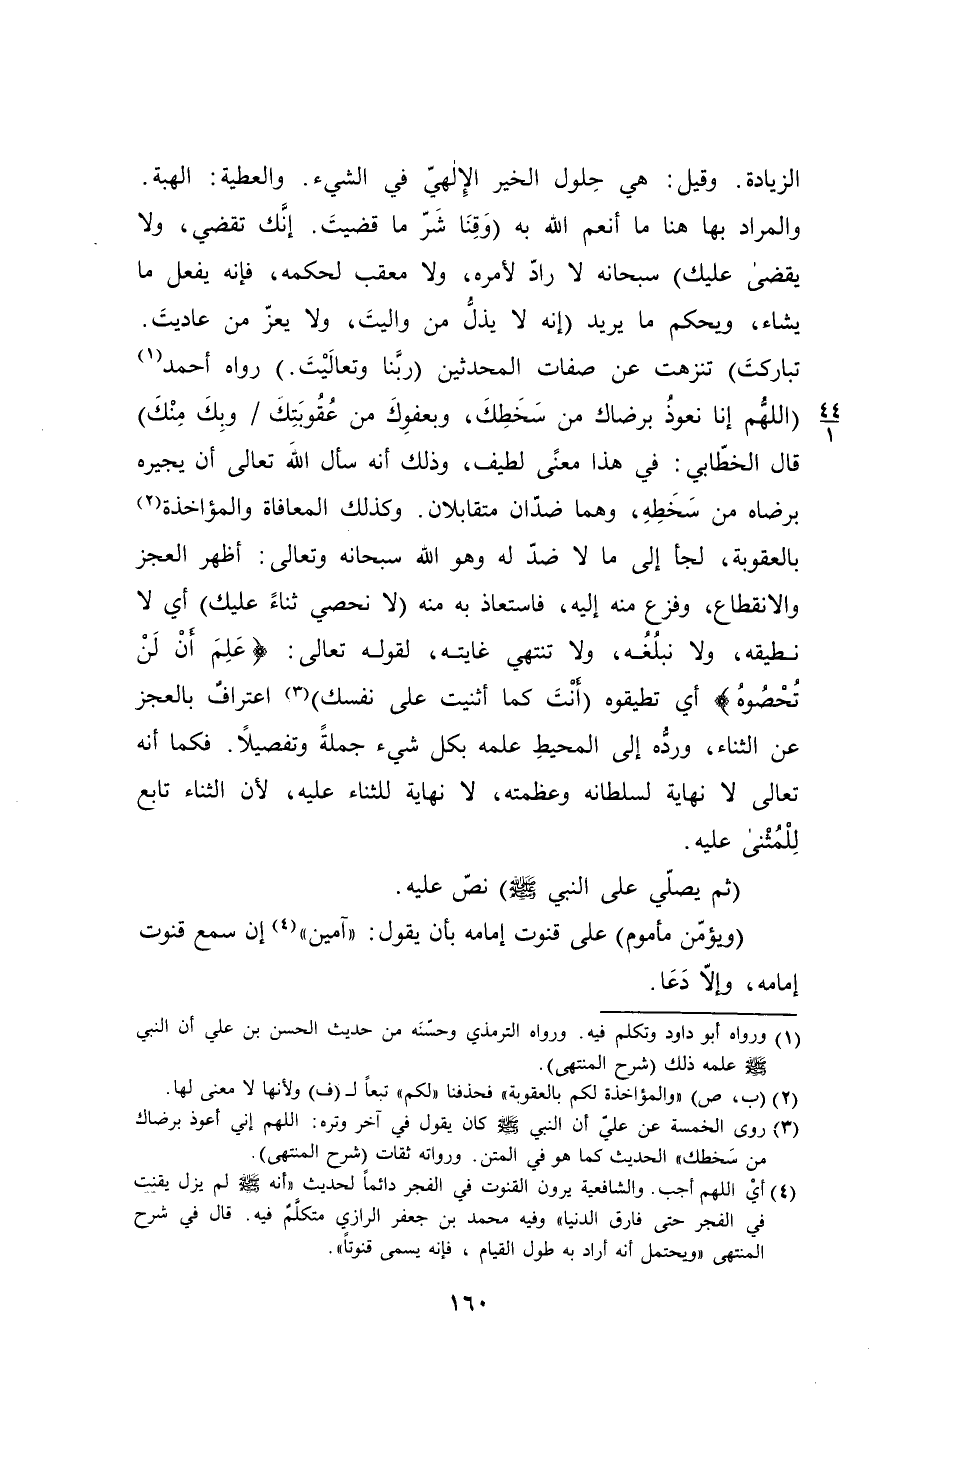 الزيادة. وقيل: هي حِلول الخير الإِلٰهيّ في الشيء. والعطية: الهبة.
والمراد بها هنا ما أنعم الله به (وَقِنَا شَرّ ما قضيتَ. إنَّك تقضي، ولا
يقضىٰ عليك) سبحانه لا رادّ لأمره، ولا معقب لحكمه، فإنه يفعل ما
يشاء، ويحكم ما يريد (إنه لا يذلُّ من واليتَ، ولا يعزّ من عاديتَ.
تباركتَ) تنزهت عن صفات المحدثين (ربَّنا وتعالَيْتَ.) رواه أحمد(١)
(اللهُّم إنا نعوذُ برضاك من سَخَطِكَ، وبعفوِكَ من عُقُوبَتِكَ / وبِكَ مِنْكَ) ٤٤/١
قال الخطّابي: في هذا معنًى لطيف، وذلك أنه سأل اللهَ تعالى أن يجيره
برضاه من سَخَطِهِ، وهما ضدّان متقابلان. وكذلك المعافاة والمؤاخذة(٢)
بالعقوبة، لجأ إلى ما لا ضدّ له وهو الله سبحانه وتعالى: أظهر العجز
والانقطاع، وفزع منه إليه، فاستعاذ به منه (لا نحصي ثناءً عليك) أي لا
نطيقه، ولا نبلُغُه، ولا تنتهي غايته، لقوله تعالى: ﴿عَلِمَ أَنْ لَنْ
تُحْصُوهُ﴾ أي تطيقوه (أَنْتَ كما أثنيت على نفسك)(٣) اعترافٌ بالعجز
عن الثناء، وردُّه إلى المحيطِ علمه بكل شيء جملةً وتفصيلاً. فكما أنه
تعالى لا نهاية لسلطانه وعظمته، لا نهاية للثناء عليه، لأن الثناء تابع
لِلْمُثْنىٰ عليه.
(ثم يصلّي على النبي ﷺ) نصّ عليه.
(ويؤمّن مأموم) على قنوت إمامه بأن يقول: «آمين»(٤) إن سمع قنوت
إمامه، وإلاّ دَعَا.
(١) ورواه أبو داود وتكلم فيه. ورواه الترمذي وحسّنَه من حديث الحسن بن علي أن النبي
ﷺ علمه ذلك (شرح المنتهى).
(٢) (ب، ص) «والمؤاخذة لكم بالعقوبة» فحذفنا «لكم» تبعاً لـ (ف) ولأنها لا معنى لها.
(٣) روى الخمسة عن عليّ أن النبي ﷺ كان يقول في آخر وتره: اللهم إني أعوذ برضاك
من سَخطك» الحديث كما هو في المتن. ورواته ثقات (شرح المنتهى).
(٤) أيْ اللهم أجب. والشافعية يرون القنوت في الفجر دائماً لحديث «أنه ﷺ لم يزل يقنت
في الفجر حتى فارق الدنيا» وفيه محمد بن جعفر الرازي متكلَّمٌ فيه. قال في شرح
المنتهى «ويحتمل أنه أراد به طول القيام ، فإنه يسمى قنوتاً».
١٦٠